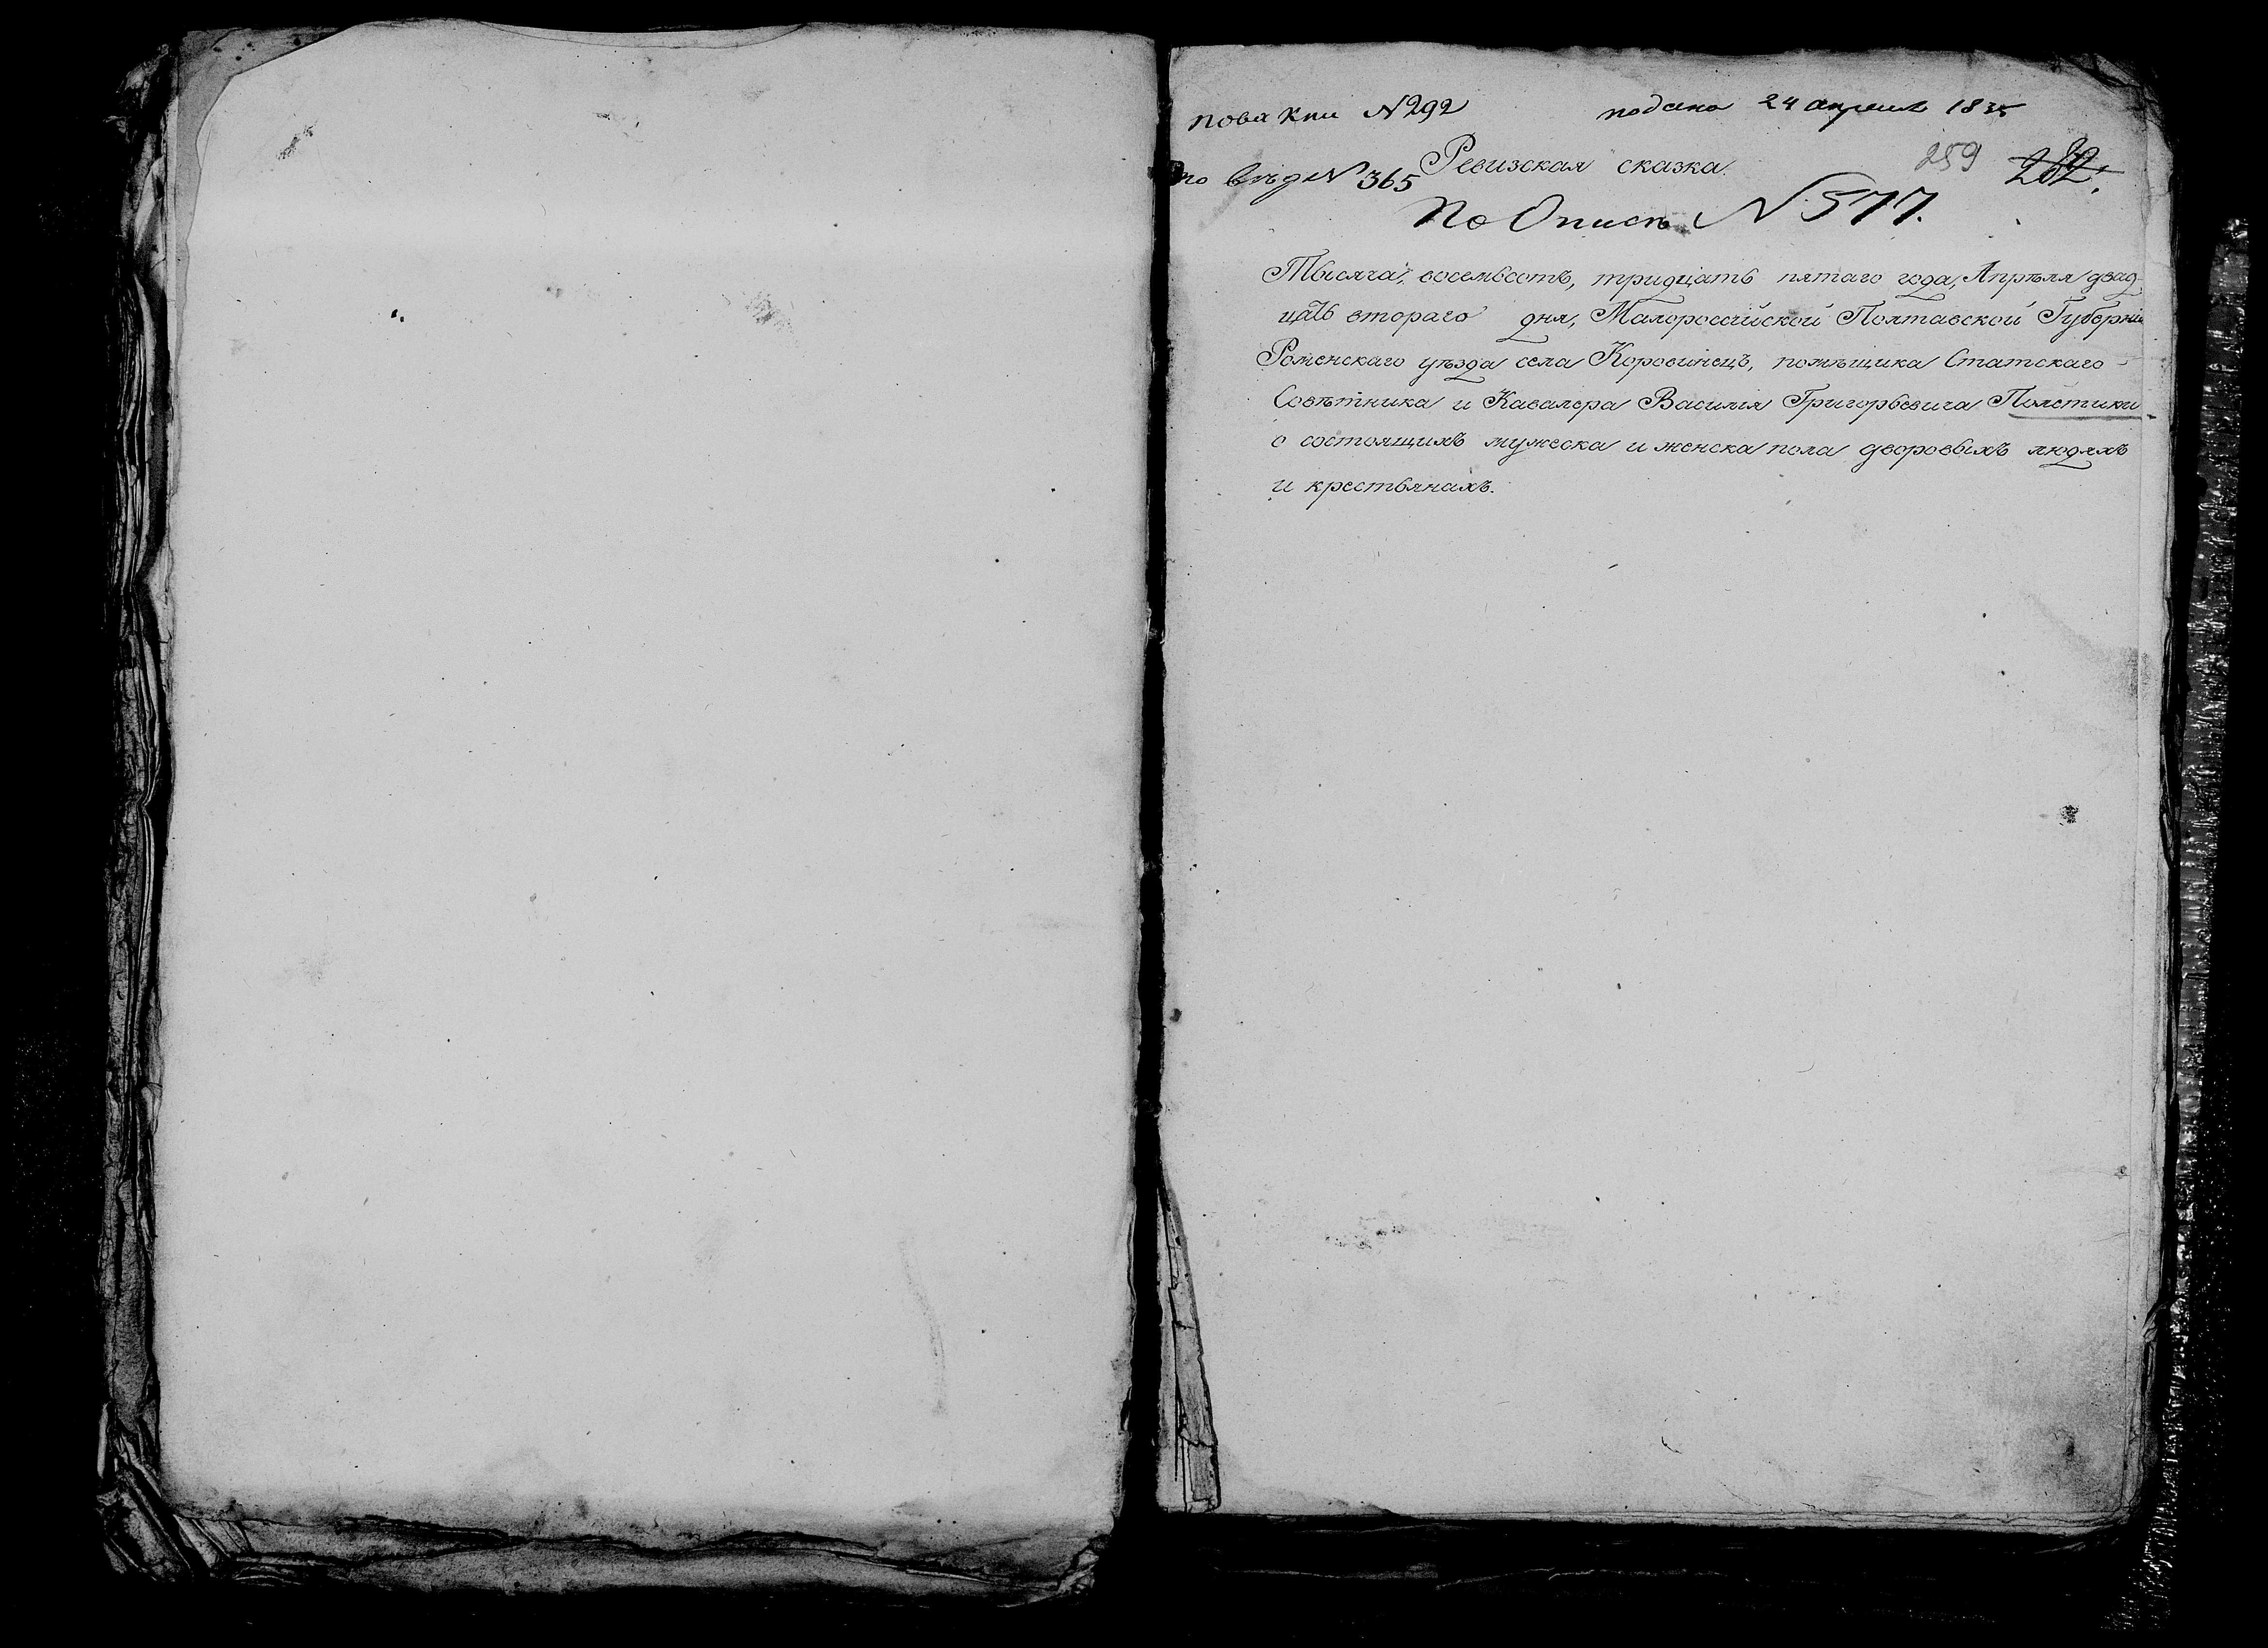 N 292 подано 24 апреля 1835
259 282.
по вѣд N 365 Ревизская сказка.
По Описи N 577.
Тысяча, восемьсотъ, тридцать пятаго года, Апрѣля двад
цать втораго дня, Малороссійской Полтавской Губерніи
Роменскаго уѣзда села Коровинецъ, помѣщика Статскаго
Совѣтника и Кавалера Василія Григорьевича Полетики
о состоящихъ мужеска и женска пола дворовыхъ людяхъ
и крестьянахъ.